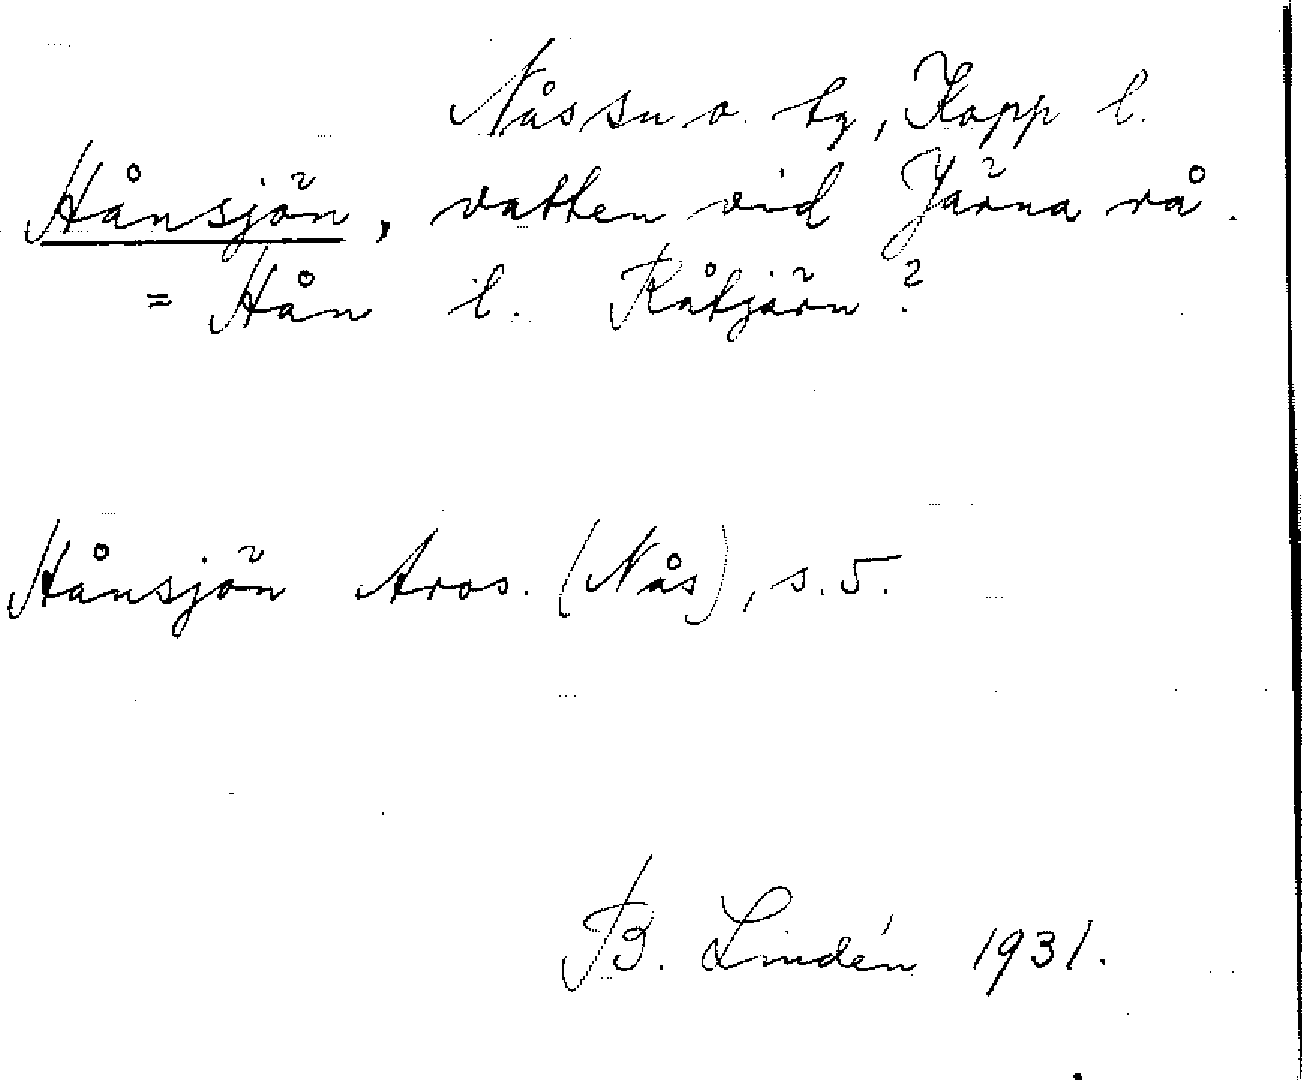 Nås sn o. tg, Kopp l.
Hånsjön, vatten vid Järna rå.
= Hån l. Råtjärn?
Hånsjön Aros. (Nås), s. 5.
B. Lindén 1931.